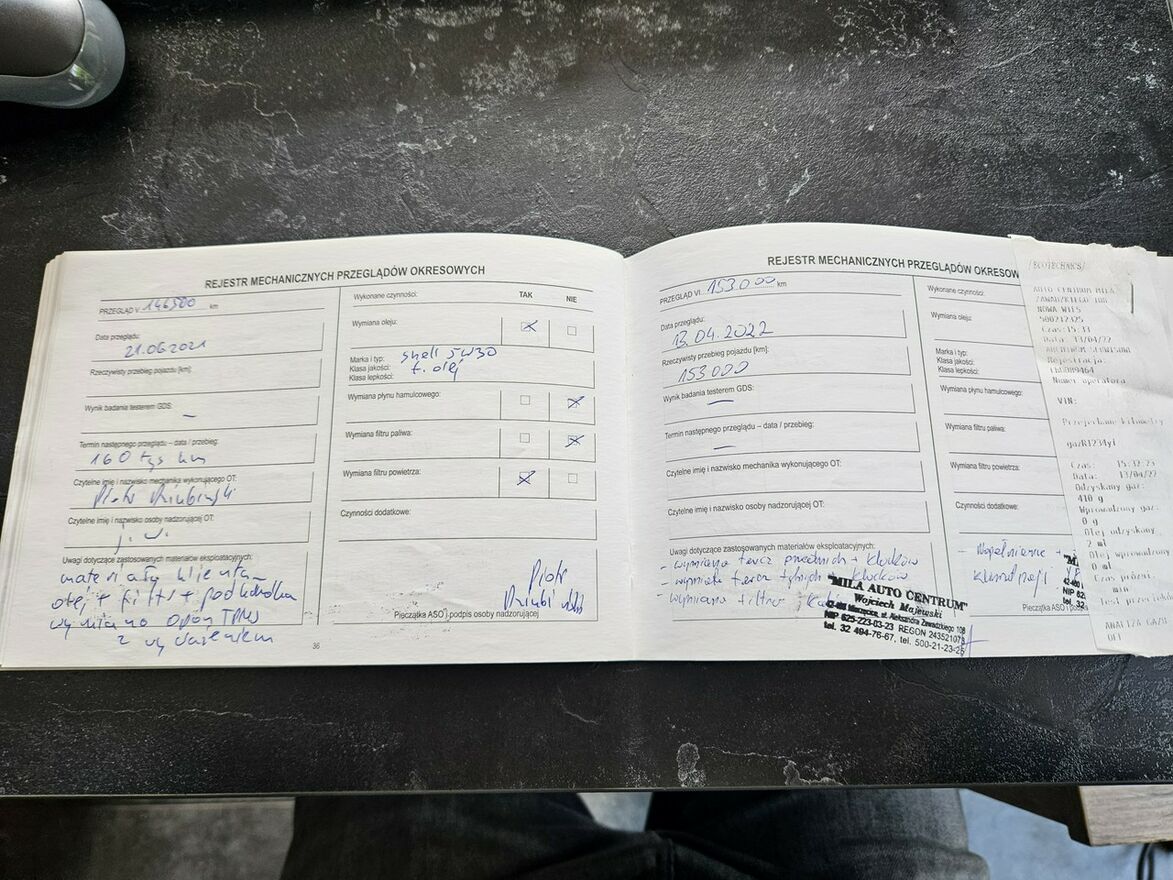 REJESTR MECHANICZNYCH PRZEGLĄDÓW OKRESOWYCH
PRZEGLĄD V 146500 km
Data przeglądu:
21.06.2021
Rzeczywisty przebieg pojazdu [km]:
Wynik badania testerem GDS:
—
Termin następnego przeglądu – data / przebieg:
160 tys km
Czytelne imię i nazwisko mechanika wykonującego OT:
Piotr
Czytelne imię i nazwisko osoby nadzorującej OT:
j. w.
Uwagi dotyczące zastosowanych materiałów eksploatacyjnych:
materiały klienta
olej + filtr + podkładka
wymiana opon
z wyważeniem
Wykonane czynności: TAK NIE
Wymiana oleju:
Marka i typ: Shell 5W30
Klasa jakości: f. olej
Klasa lepkości:
Wymiana płynu hamulcowego:
Wymiana filtru paliwa:
Wymiana filtru powietrza:
Czynności dodatkowe:
Piotr
Pieczątka ASO i podpis osoby nadzorującej
36
REJESTR MECHANICZNYCH PRZEGLĄDÓW OKRESOW
PRZEGLĄD VI 153.000 km
Data przeglądu:
13.04.2022
Rzeczywisty przebieg pojazdu [km]:
153000
Wynik badania testerem GDS:
—
Termin następnego przeglądu – data / przebieg:
—
Czytelne imię i nazwisko mechanika wykonującego OT:
Czytelne imię i nazwisko osoby nadzorującej OT:
Uwagi dotyczące zastosowanych materiałów eksploatacyjnych:
- wymiana tarcz przednich + klocków
- wymiana tarcz tylnych + klocków
- wymiana filtra
"MILA AUTO CENTRUM"
Wojciech Majewski
42-480 Mierzęcice, ul. Aleksandra Zawadzkiego 108
NIP 625-223-03-23 REGON 243521078
tel. 32 494-76-67, tel. 500-21-23-25
Wykonane czynności:
Wymiana oleju:
Marka i typ:
Klasa jakości:
Klasa lepkości:
Wymiana płynu hamulcowego:
Wymiana filtru paliwa:
Wymiana filtru powietrza:
Czynności dodatkowe:
- Napełnienie
klimatyzacji
Pieczątka ASO i podpis
NIP 62
tel. 32
/ECOTECHNICS/
AUTO CENTRUM MILA
ZAWADZKIEGO 108
NOWA WIES
500212325
Czas: 15:33
Data: 13/04/22
Rejestracja:
Numer operatora
VIN:
Przejechane kilometry
gazR1234yf
Czas: 15:32:25
Data: 13/04/22
Odzyskany gaz:
410 g
Wprowadzony gaz:
0 g
Olej odzyskany
2 ml
Olej wprowadzony
0 ml
Czas próżni
min
ANALIZA GAZU
OFF